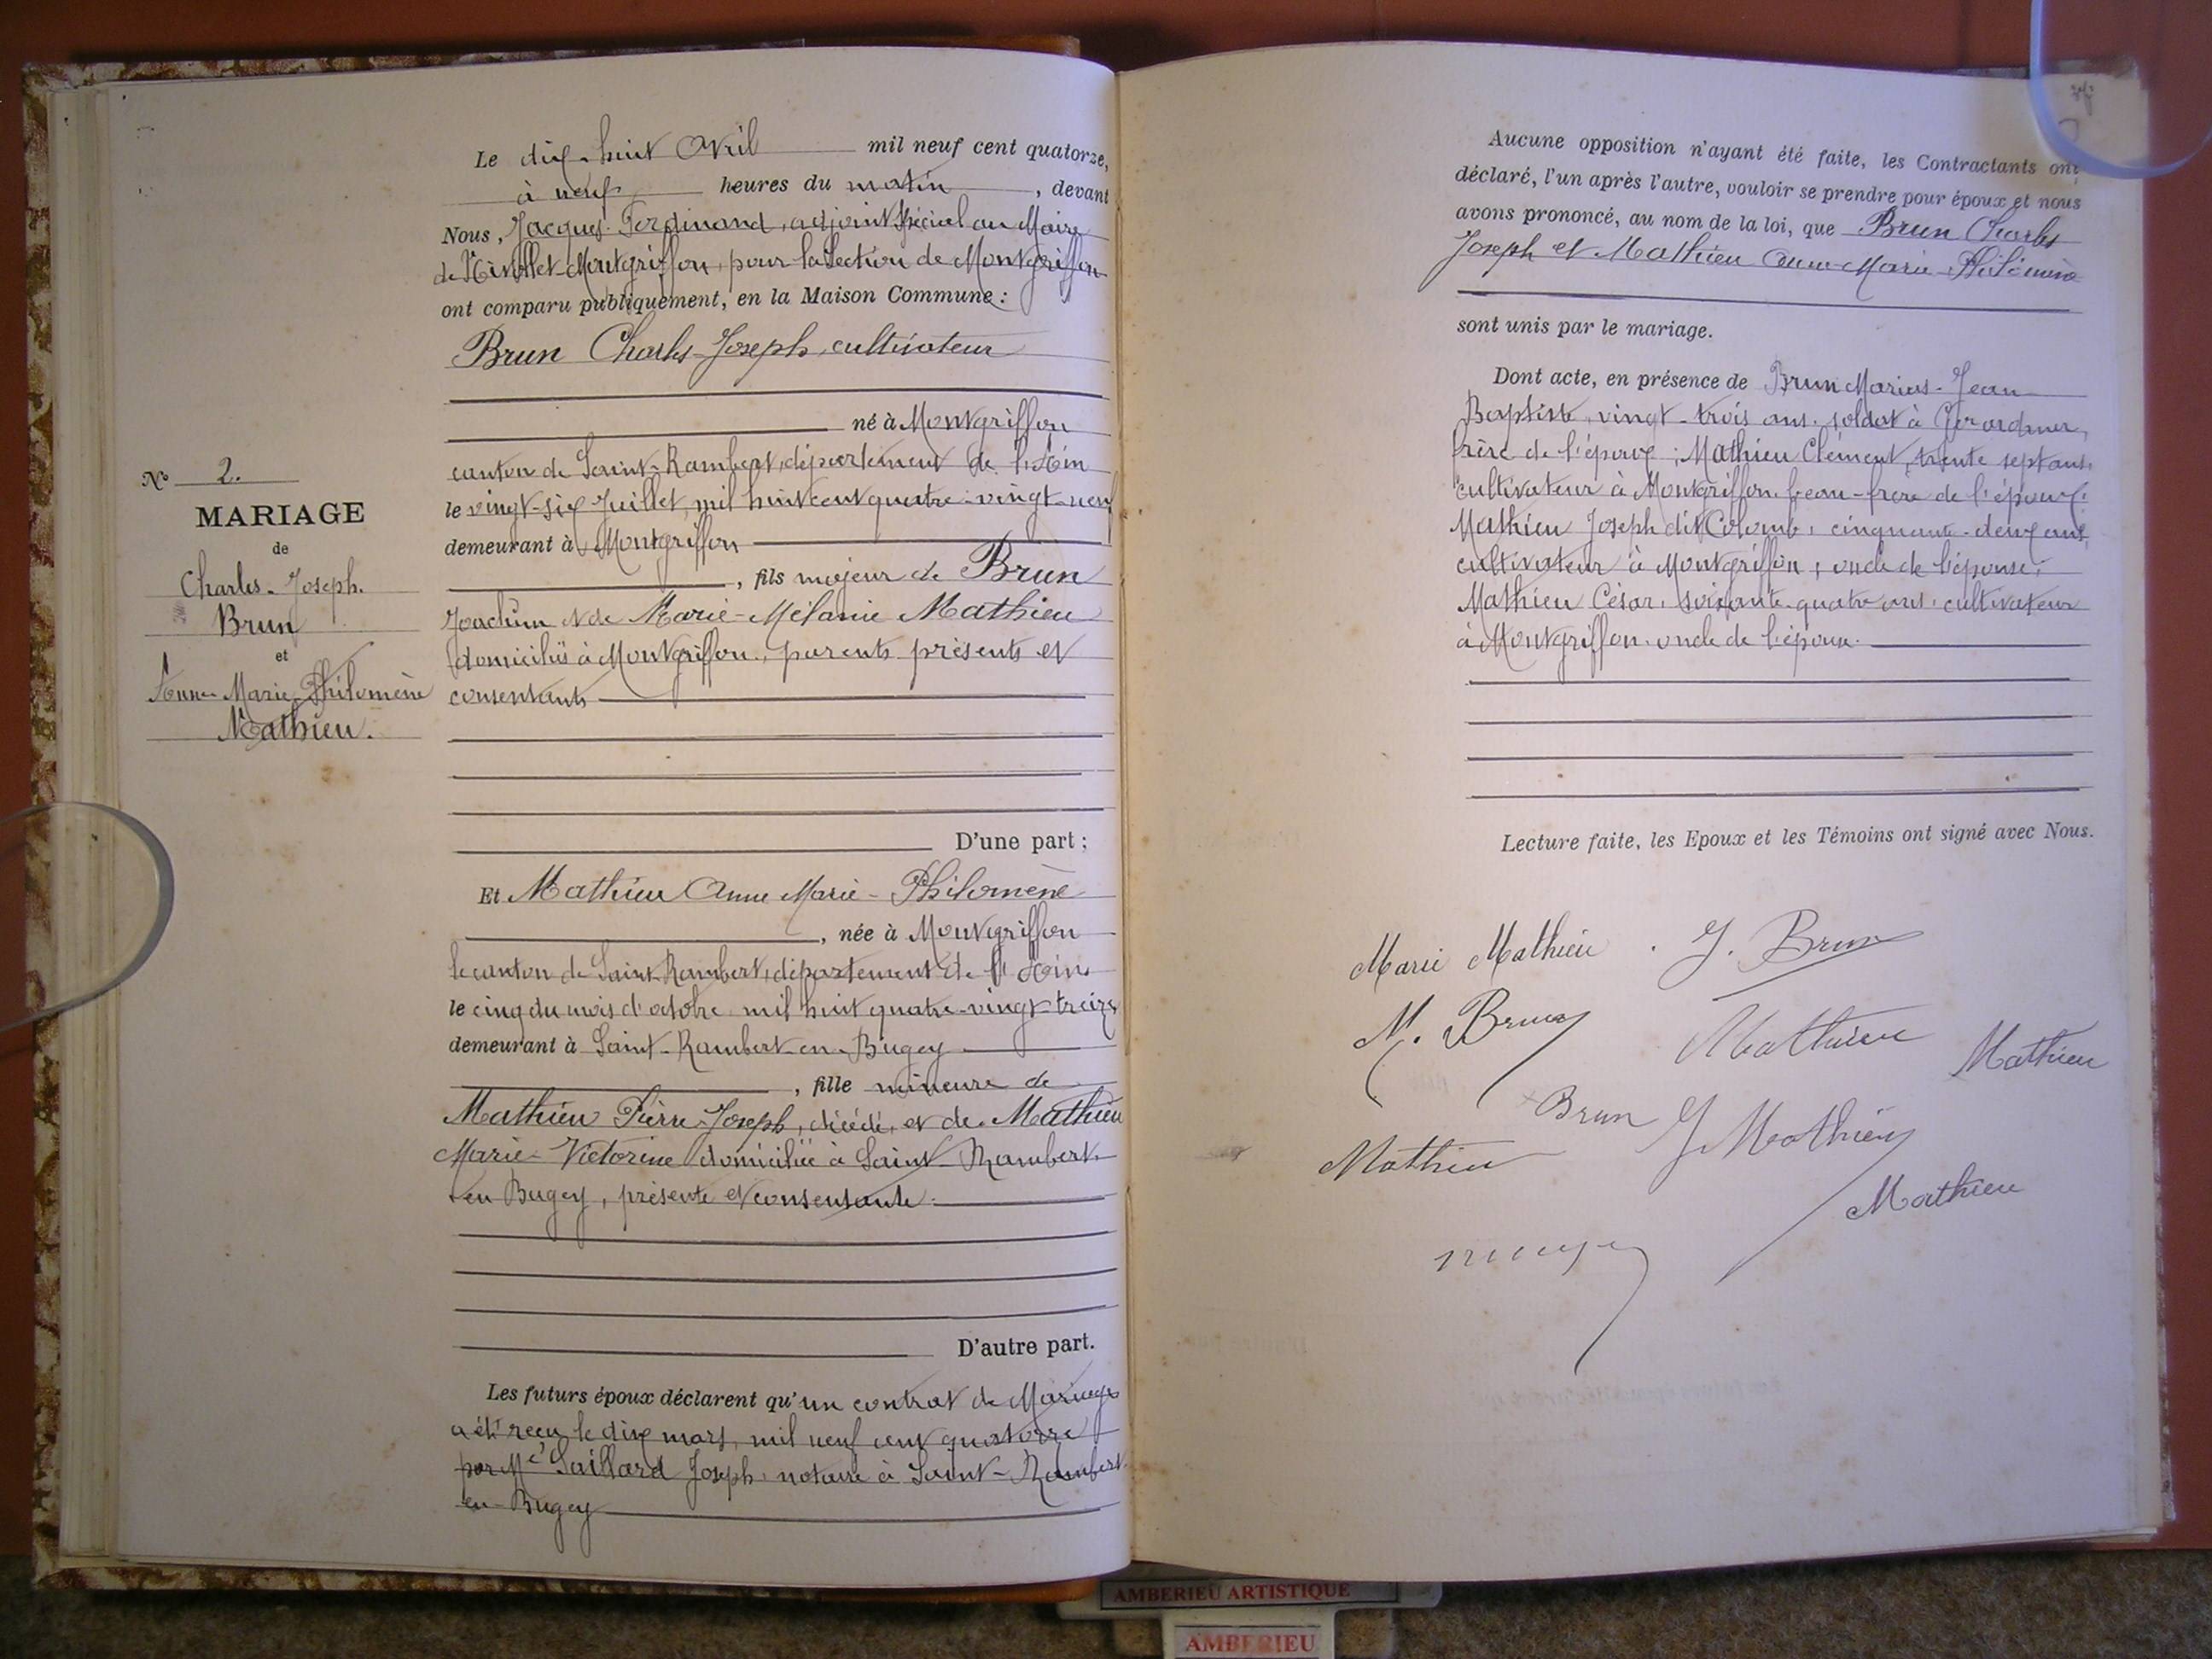 N° 2.
MARIAGE
de
Charles-Joseph.
Brun
et
Anne-Marie-Philomène
Mathieu.
Le dix-huit Avril mil neuf cent quatorze,
à neuf heures du matin, devant
Nous, Jacques Ferdinand, adjoint spécial au Maire
de Nivollet-Montgriffon, pour la section de Montgriffon
ont comparu publiquement, en la Maison Commune :
Brun Charles-Joseph, cultivateur
né à Montgriffon
canton de Saint-Rambert, département de l'Ain
le vingt-six Juillet, mil huit cent quatre-vingt-neuf
demeurant à Montgriffon
, fils majeur de Brun
Joachim et de Marie-Mélanie Mathieu
domiciliés à Montgriffon, parents présents et
consentants
D'une part ;
Et Mathieu Anne Marie-Philomène
, née à Montgriffon
le canton de Saint-Rambert, département de l'Ain
le cinq du mois d'octobre mil huit quatre-vingt-treize
demeurant à Saint-Rambert-en-Bugey
, fille mineure de
Mathieu Pierre-Joseph, décédé, et de Mathieu
Marie-Victorine domiciliée à Saint-Rambert-
en Bugey, présente et consentante.
D'autre part.
Les futurs époux déclarent qu'un contrat de Mariage
a été reçu le dix mars, mil neuf cent quatorze
par Me Saillard Joseph, notaire à Saint-Rambert-
en-Bugey
Aucune opposition n'ayant été faite, les Contractants ont
déclaré, l'un après l'autre, vouloir se prendre pour époux et nous
avons prononcé, au nom de la loi, que Brun Charles
Joseph et Mathieu Anne-Marie-Philomène
sont unis par le mariage.
Dont acte, en présence de Brun Marius-Jean
Baptiste, vingt-trois ans, soldat à Gérardmer,
frère de l'époux ; Mathieu Clément, trente sept ans,
cultivateur à Montgriffon, beau-frère de l'époux ;
Mathieu Joseph dit Colomb, cinquante-deux ans,
cultivateur à Montgriffon, oncle de l'épouse ;
Mathieu César, soixante-quatre ans, cultivateur
à Montgriffon, oncle de l'époux.
Lecture faite, les Epoux et les Témoins ont signé avec Nous.
Marie Mathieu . J. Brun
M. Brun Mathieu Mathieu
Brun J Mathieu
Mathieu
Mathieu
AMBERIEU ARTISTIQUE
AMBERIEU